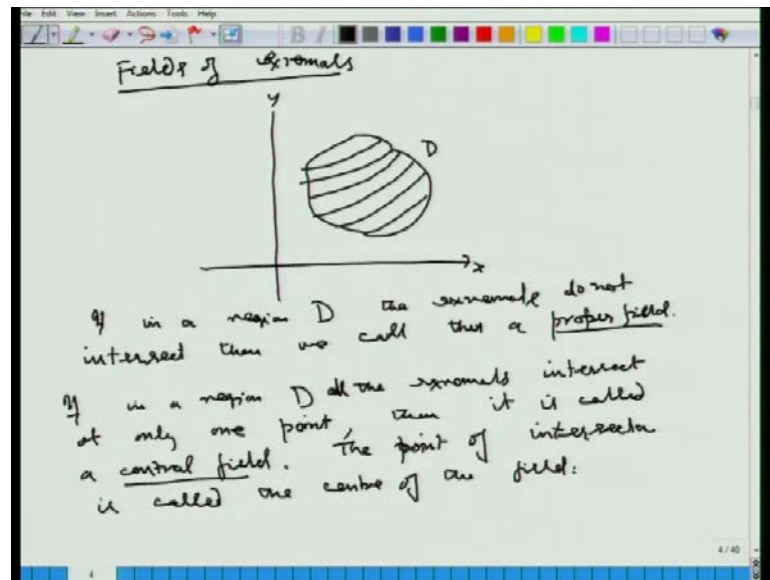 File Edit View Insert Actions Tools Help
Fields of extremals
y
D
x
If in a region D the extremals do not
intersect then we call this a proper field.
If in a region D all the extremals intersect
at only one point, then it is called
a central field. The point of intersection
is called the centre of the field.
4/40
4